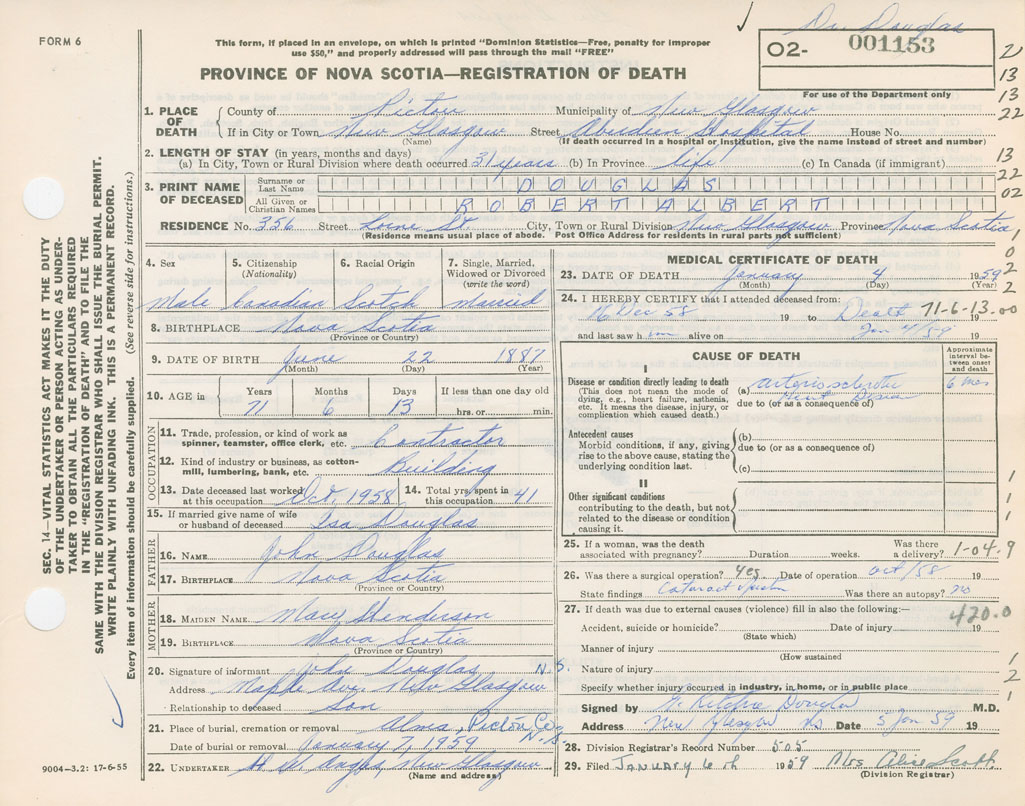 Dr. Douglas
FORM 6
This form, if placed in an envelope, on which is printed "Dominion Statistics—Free, penalty for improper
use $50," and properly addressed will pass through the mail "FREE"
O2- 001153
For use of the Department only
PROVINCE OF NOVA SCOTIA—REGISTRATION OF DEATH
2
13
13
22
13
22
02
1
0
2
2
1. PLACE OF DEATH { County of Pictou Municipality of New Glasgow
If in City or Town New Glasgow Street Aberdeen Hospital House No.
(Name) (If death occurred in a hospital or institution, give the name instead of street and number)
2. LENGTH OF STAY (in years, months and days)
(a) In City, Town or Rural Division where death occurred 31 years (b) In Province life (c) In Canada (if immigrant)
3. PRINT NAME OF DECEASED { Surname or Last Name DOUGLAS
All Given or Christian Names ROBERT ALBERT
RESIDENCE No. 356 Street Lorne St. City, Town or Rural Division New Glasgow Province Nova Scotia
(Residence means usual place of abode. Post Office Address for residents in rural parts not sufficient)
SEC. 14—VITAL STATISTICS ACT MAKES IT THE DUTY
OF THE UNDERTAKER OR PERSON ACTING AS UNDER-
TAKER TO OBTAIN ALL THE PARTICULARS REQUIRED
IN THE "REGISTRATION OF DEATH" AND FILE THE
SAME WITH THE DIVISION REGISTRAR WHO SHALL ISSUE THE BURIAL PERMIT.
WRITE PLAINLY WITH UNFADING INK. THIS IS A PERMANENT RECORD.
Every item of information should be carefully supplied. (See reverse side for instructions.)
4. Sex 5. Citizenship (Nationality) 6. Racial Origin 7. Single, Married, Widowed or Divorced (write the word)
Male Canadian Scotch Married
8. BIRTHPLACE Nova Scotia
(Province or Country)
9. DATE OF BIRTH June 22 1887
(Month) (Day) (Year)
10. AGE in Years Months Days If less than one day old
71 6 13 hrs. or min.
OCCUPATION
11. Trade, profession, or kind of work as spinner, teamster, office clerk, etc. Contractor
12. Kind of industry or business, as cotton-mill, lumbering, bank, etc. Building
13. Date deceased last worked at this occupation Oct. 1958 14. Total yrs. spent in this occupation 41
15. If married give name of wife or husband of deceased Isa Douglas
FATHER
16. NAME John Douglas
17. BIRTHPLACE Nova Scotia
(Province or Country)
MOTHER
18. MAIDEN NAME Mary Henderson
19. BIRTHPLACE Nova Scotia
(Province or Country)
20. Signature of informant John Douglas
Address Maple Ave. New Glasgow N.S.
Relationship to deceased Son
21. Place of burial, cremation or removal Alma, Pictou Co., N.S.
Date of burial or removal January 7, 1959
22. UNDERTAKER New Glasgow
(Name and address)
MEDICAL CERTIFICATE OF DEATH
23. DATE OF DEATH January 4 1959
(Month) (Day) (Year)
24. I HEREBY CERTIFY that I attended deceased from:
16 Dec 58 19 to Death 71-6-13.00
and last saw him alive on Jan 4/59 19
CAUSE OF DEATH
Approximate interval between onset and death
I
Disease or condition directly leading to death
(This does not mean the mode of dying, e.g., heart failure, asthenia, etc. It means the disease, injury, or complication which caused death.)
(a) arteriosclerotic 6 mos
Heart Disease
due to (or as a consequence of)
Antecedent causes
Morbid conditions, if any, giving rise to the above cause, stating the underlying condition last.
(b)
due to (or as a consequence of)
(c)
II
Other significant conditions contributing to the death, but not related to the disease or condition causing it.
1
1
1
1
25. If a woman, was the death associated with pregnancy? Duration weeks. Was there a delivery? 1-04.9
26. Was there a surgical operation? yes. Date of operation Oct/58 19
State findings Cataract Was there an autopsy? no
27. If death was due to external causes (violence) fill in also the following:— 420.0
Accident, suicide or homicide? Date of injury 19
(State which)
Manner of injury
(How sustained
Nature of injury
Specify whether injury occurred in industry, in home, or in public place
1
2
1
Signed by Ritchie Douglas M.D.
Address New Glasgow NS Date 5 Jan 59 19
28. Division Registrar's Record Number 505
29. Filed January 6th 1959 Mrs Alice Scott
(Division Registrar)
9004-3.2: 17-6-55